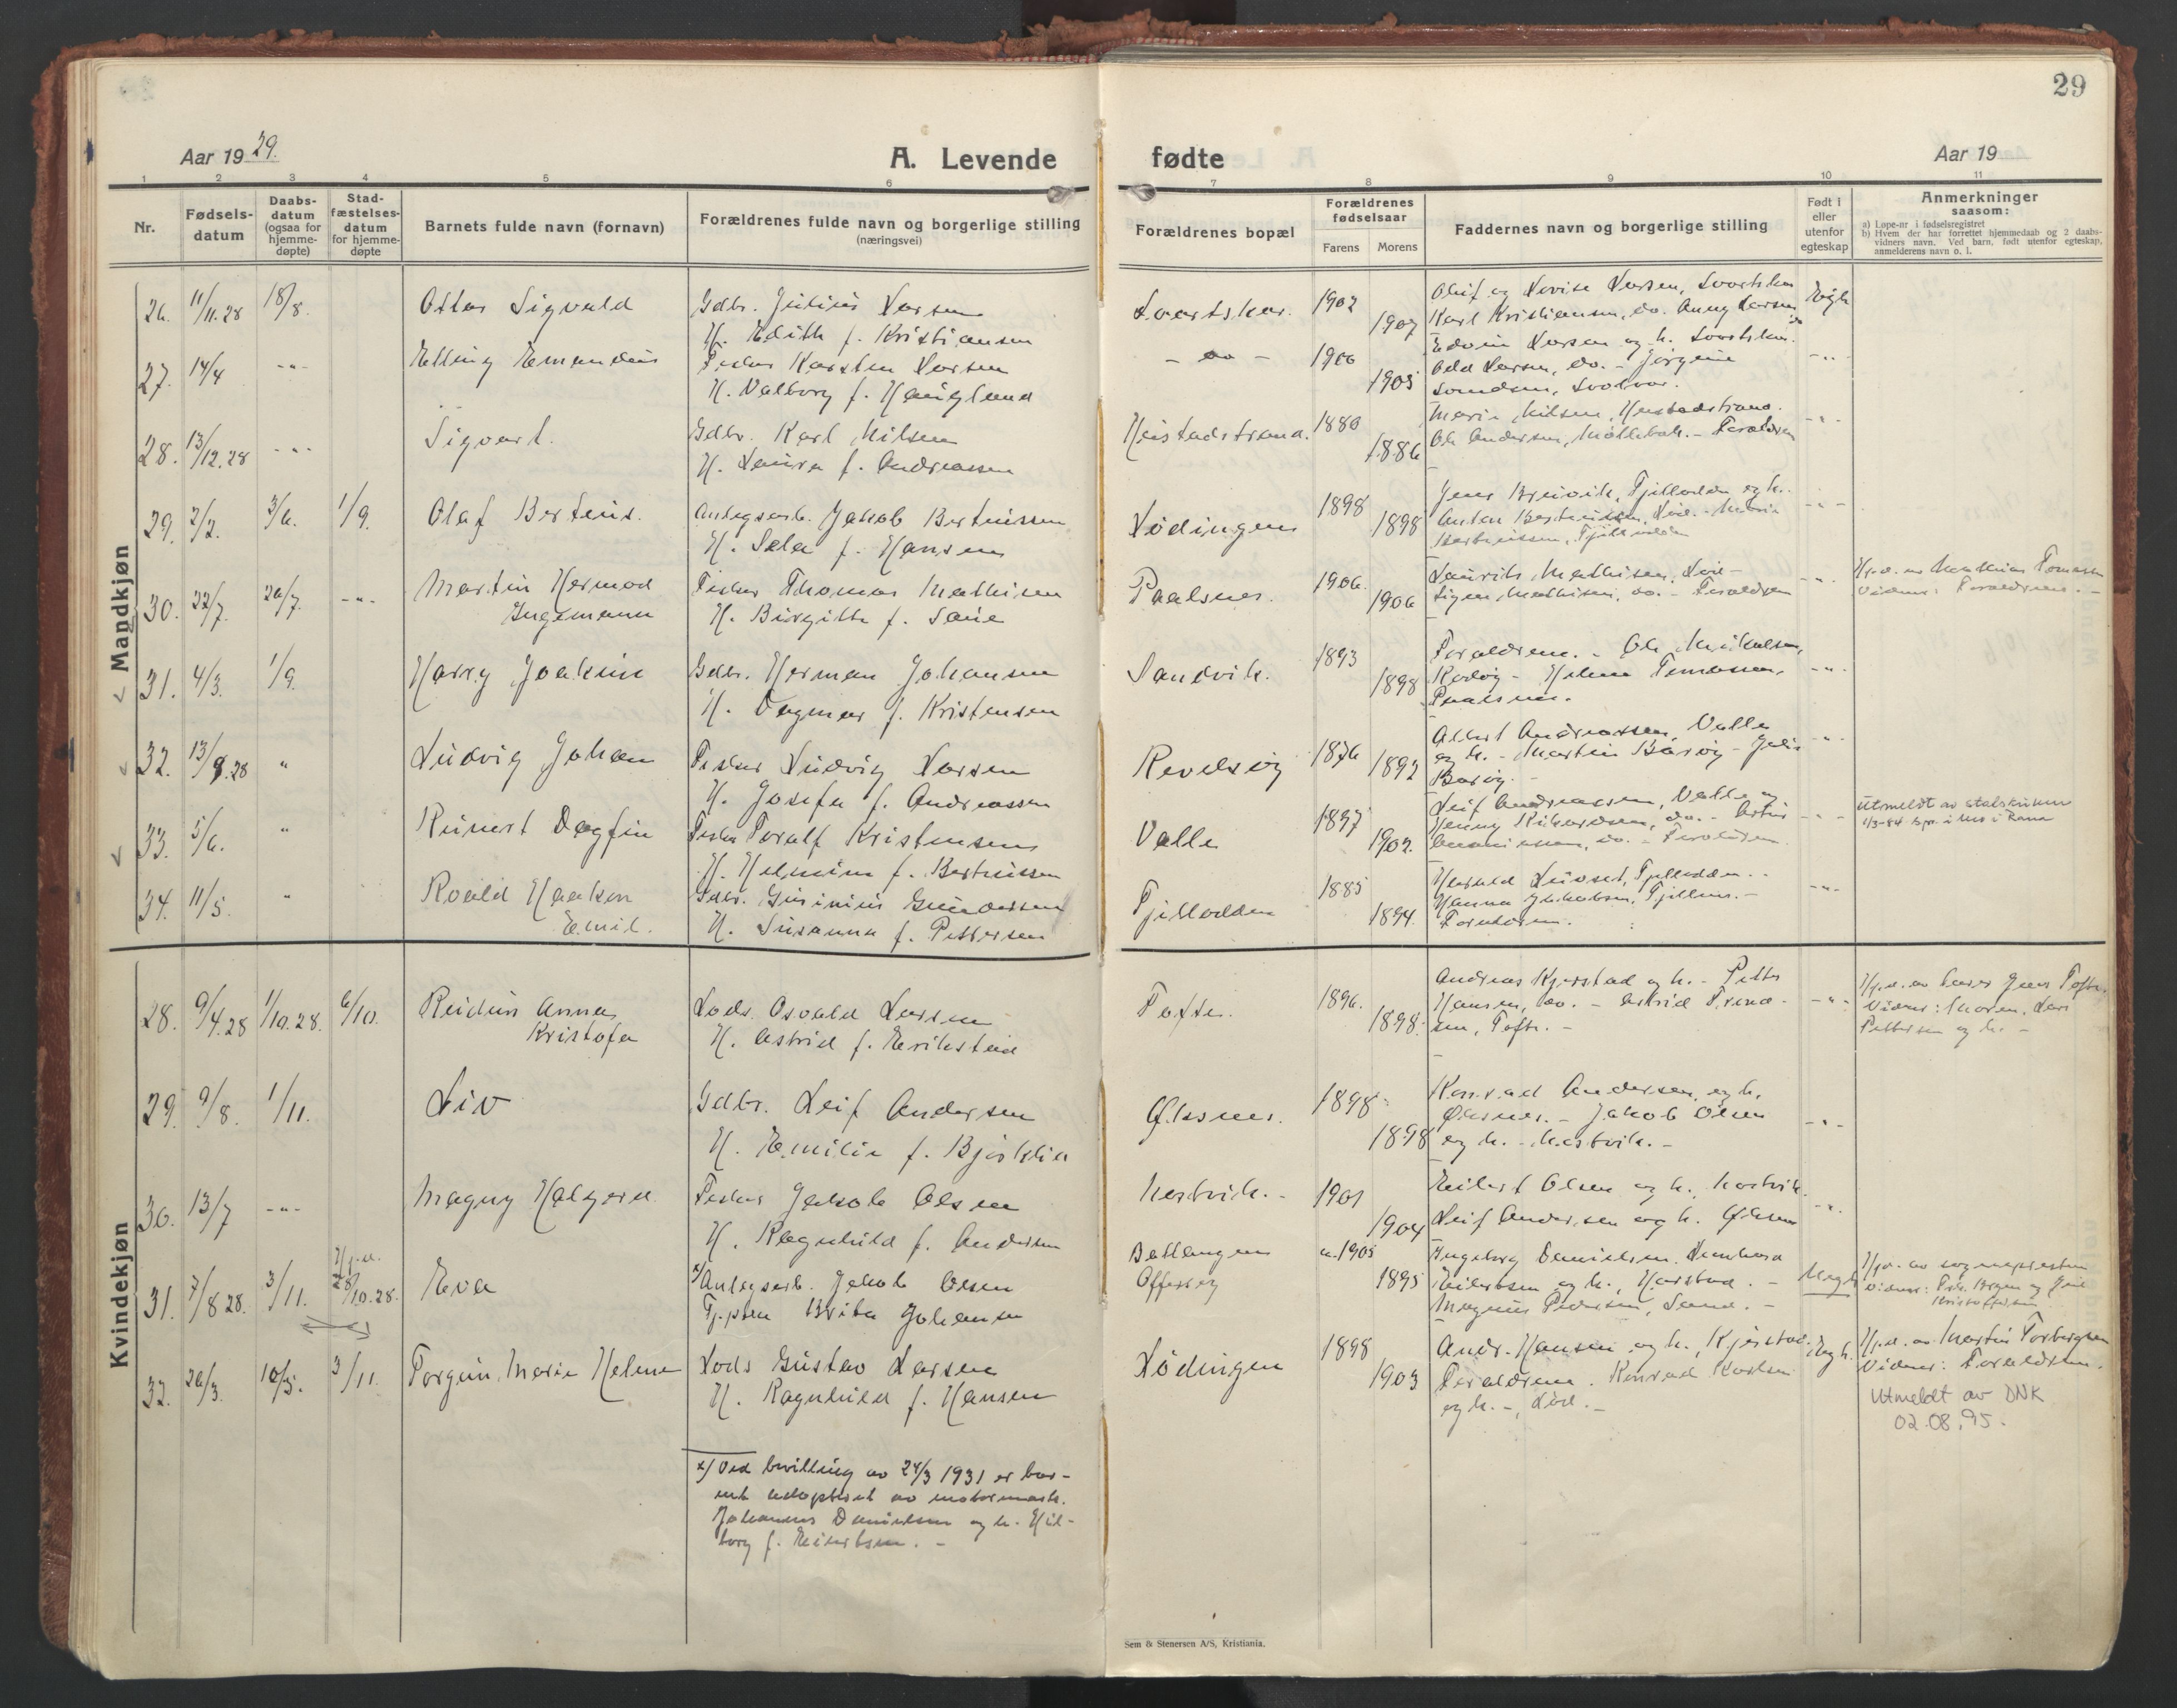 29
Aar 1929.
A. Levende fødte
Aar 19
1 2 3 4 5 6 7 8 9 10 11
Nr.
Fødsels-
datum
Daabs-
datum
(ogsaa for
hjemme-
døpte)
Stad-
fæstelses-
datum
for hjemme-
døpte
Barnets fulde navn (fornavn)
Forældrenes fulde navn og borgerlige stilling
(næringsvei)
Forældrenes bopæl
Forældrenes
fødselsaar
Farens Morens
Faddernes navn og borgerlige stilling
Født i
eller
utenfor
egteskap
Anmerkninger
saasom:
a) Løpe-nr i fødselsregistret
b) Hvem der har forrettet hjemmedaab og 2 daabs-
vidners navn. Ved barn, født utenfor egteskap,
anmelderens navn o. l.
Mandkjøn
26. 11/11.28 18/8. Sigvald
Gdbr. Julius Larsen
H. Edith f. Kristiansen
1902
1907
Oluf og Lovise Larsen,
Karl Kristiansen, do. Anny Larsen
Egte
27. 14/4 -"-
Fisker Karsten Larsen
H. Valborg f. Haugland
- do -
1906
1905
Edvin Larsen og h.
Odd Larsen, do. - Jørgine
Svolvær.
-"-
28. 13/12.28 -"- Sigvart.
Gdbr. Karl Nilsen
H. Laura f. Andreassen
1880
1886
Marie Nilsen,
Ole Andersen, - Forældren
-"-
29. 2/2. 3/6. 1/9. Olaf Berteus.
Anlegsarb. Jakob Berteussen
H. f. Hansen
Lødingen
1898
1898
Jens Breivik, Fjelldalen og h.
Anton Berteussen, Lød. -
Berteussen, Fjelldalen
-"-
30. 22/7. 26/7. -"- Martin Hermod
Ingemann
Fisker Thomas Mathisen
H. Birgitte f.
Paalsnes.
1906.
1906
Laurits Mathisen, Lød -
Signe Mathisen, do. - Forældren
-"-
Hj.d. av Mathias Tomassen
Vidner: Forældrene. -
31. 4/3. 1/9. Harry Joakim
Gdbr. Herman Johansen
H. Dagmar f. Kristensen
Sandvik.
1893
1898
Forældrene. - Ole Mikalsen,
Rødøy - Helene Tomassen,
Paalsnes.
-"-
32. 13/9.28 " Ludvig Johan
Fisker Ludvig Larsen
H. Josefa f. Andreassen
Revelsøy
1876
1892
Albert Andreassen, Valle
og h. - Martin Barøy -
Barøy. -
-"-
33. 5/6. " Reinert Dagfin
Fisker Toralf Kristensen
H. Helmine f. Berteussen
Valle
1897
1902.
Leif Andreassen, Valle og
Henny Rikardsen, do. -
do. - Forældren.
-"-
Utmeldt av statskirken
1/3-84
34. 11/5. " Roald Haakon
Emil.
Gdbr. Gundersen
H. Susanna f. Pettersen
Fjelldalen
1885
1894.
Harald
Hanna Jakobsen,
-"-
Kvindekjøn
28. 9/4.28 1/10.28. 6/10. Reidun Anna
Kristofa
Lods Osvald Larsen
H. Astrid f. Erikstad
Tofte.
1896.
1898.
Andreas Kjerstad og h. - Petter
Hansen, do. - Astrid
Tofte. -
-"-
Hj.d. av lærer Jens Tofte.
Vidner: Moren, Lars
Pettersen og h. -
29. 9/8. 1/11. Liv
Gdbr. Leif Andersen
H. Emilie f. Bjørklid
Øksnes.
1898
1898
Konrad Andersen og h.
Øksnes. - Jakob Olsen
og h. - Nestvik. -
-"-
30. 13/7 -"- Magny Halgerd
Fisker Jakob Olsen
H. Ragnhild f. Andersen
Nestvik. -
1901
1904
Eilert Olsen og h., Nestvik.
Leif Andersen og h. Øksnes
-"-
31. 7/8 28. 3/11. Hj.d.
28/10.28. Eva
x) Anlegsarb. Jakob Olsen
Tj.pike Brita Johansen
Ballangen
Offersøy
u. 1905
1895
Ingeborg Danielsen,
Eilertsen og h., Harstad. -
Magnus Pedersen, -
Uegte
Hj.d. av sognepresten
32. 26/3. 10/5. 3/11. Torgun Marie Helene
Lods Gustav Larsen
H. Ragnhild f. Hansen
Lødingen
1898
1903
Andr. Hansen og h., Kjerstad.
Forældrene. Konrad Karlsen
og h. -, Lød. -
Egte.
Hj.d. av Martin Torbergsen
Vidner: Forældrene.
Utmeldt av DNK
02.08.95.
x) Ved bevilling av 24/3 1931 er bar-
net adoptert av motormask.
Johannes Danielsen og h. Hil-
borg f. Eilertsen. -
Sem & Stenersen A/S, Kristiania.